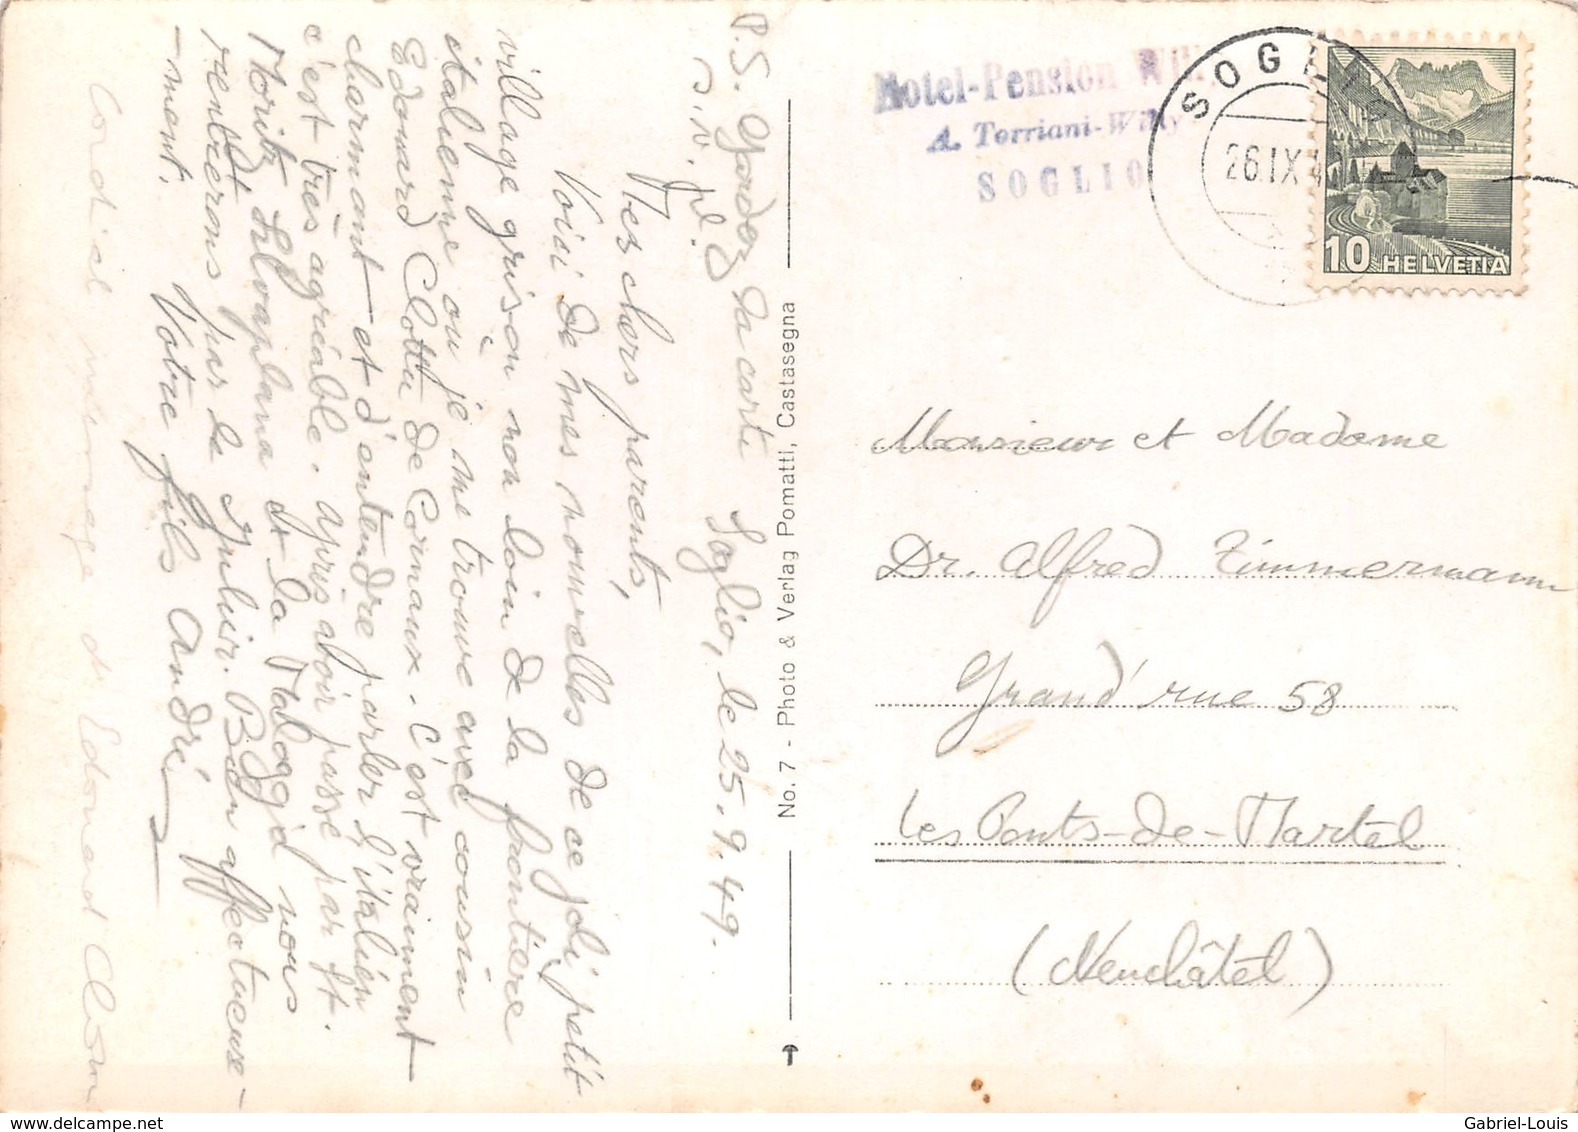 P.S. Gardez la carte
s.v.pl.
Soglio, le 25.9.49.
Mes chers parents,
Voici de mes nouvelles de ce joli petit
village grison non loin de la frontière
italienne où je me trouve avec cousin
Edouard Clottu de Cornaux. C'est vraiment
charmant et d'entendre parler l'italien
c'est très agréable. après avoir passé par St.
Moritz, Silvaplana et la Maloggia nous
rentrerons par le Julier. Bien affectueuse-
-ment. Votre fils André
Cordial message de Edouard
No. 7 - Photo & Verlag Pomatti, Castasegna
Hotel-Pension Willy
A. Torriani-Willy
SOGLIO
SOGLIO
26.IX.4
10 HELVETIA
Monsieur et Madame
Dr. Alfred Zimmermann
Grand'rue 58
Les Ponts-de-Martel
(Neuchâtel)
Gabriel-Louis